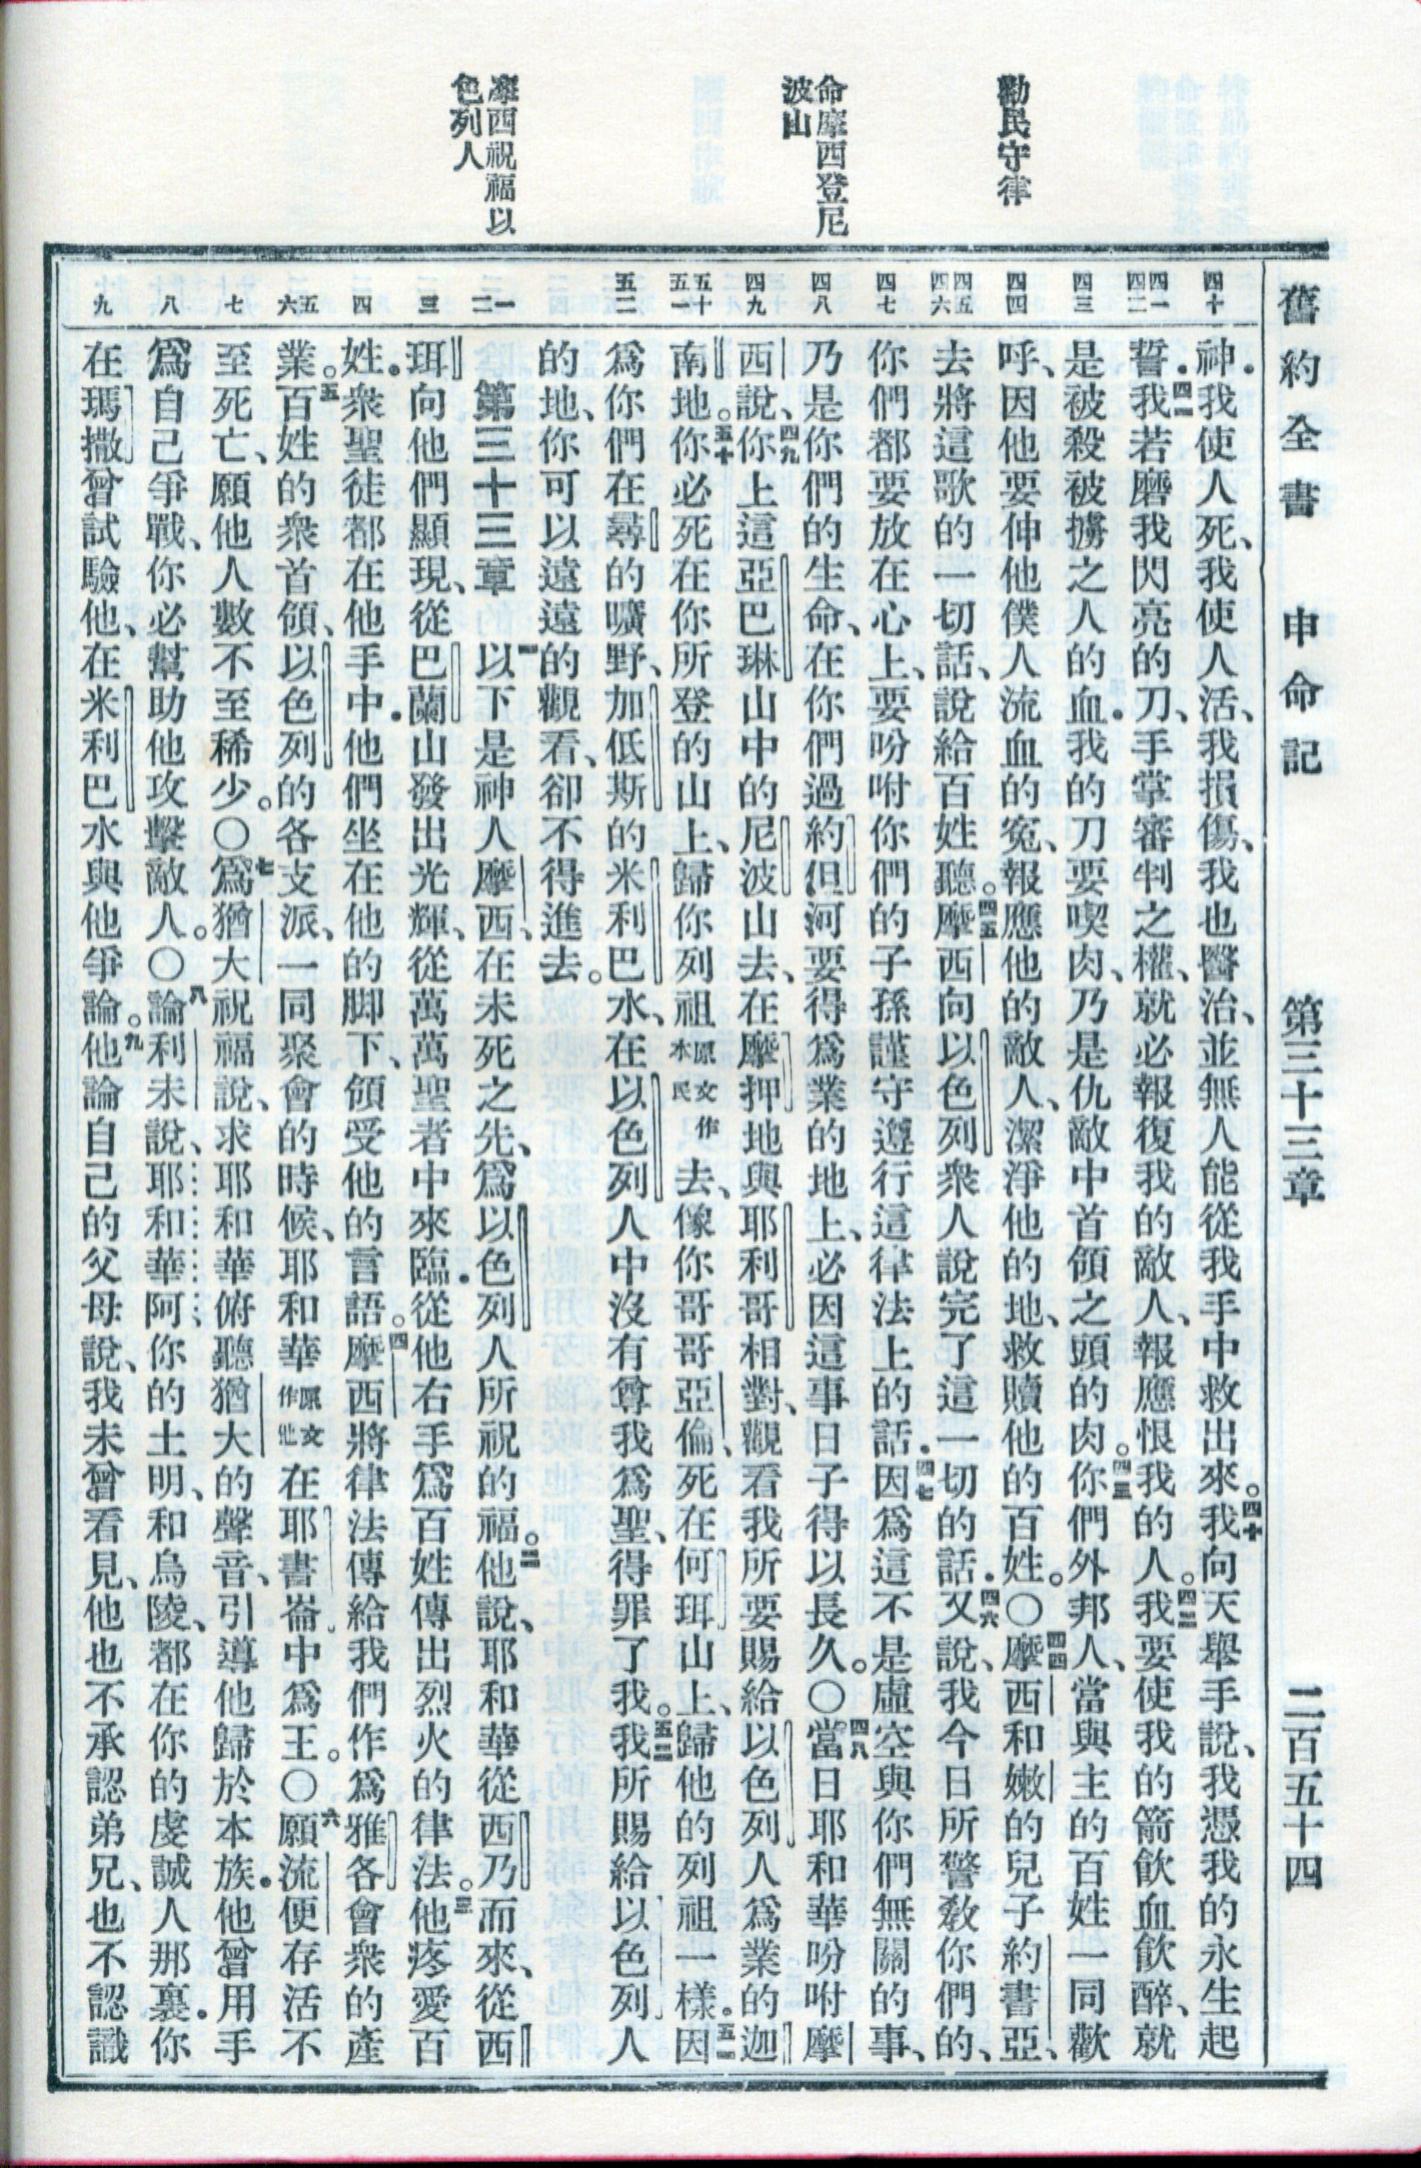 舊約全書 申命記 第三十三章 二百五十四
勸民守律
命摩西登尼
波山
摩西祝福以
色列人
四十
四一
四二
四三
四四
四五
四六
四七
四八
四九
五十
五一
五二
一
二
三
四
五
六
七
八
九
神．我使人死、我使人活、我損傷、我也醫治、並無人能從我手中救出來。四十我向天舉手說、我憑我的永生起
誓．四一我若磨我閃亮的刀、手掌審判之權、就必報復我的敵人、報應恨我的人。四二我要使我的箭飲血飲醉、就
是被殺被擄之人的血．我的刀要喫肉、乃是仇敵中首領之頭的肉。四三你們外邦人、當與主的百姓一同歡
呼、因他要伸他僕人流血的冤、報應他的敵人、潔淨他的地、救贖他的百姓。〇四四摩西和嫩的兒子約書亞、
去將這歌的一切話、說給百姓聽。四五摩西向以色列衆人說完了這一切的話．四六又說、我今日所警教你們的、
你們都要放在心上、要吩咐你們的子孫謹守遵行這律法上的話．四七因爲這不是虛空與你們無關的事、
乃是你們的生命、在你們過約但河要得爲業的地上、必因這事日子得以長久。〇四八當日耶和華吩咐摩
西說、四九你上這亞巴琳山中的尼波山去、在摩押地與耶利哥相對、觀看我所要賜給以色列人爲業的迦
南地。五十你必死在你所登的山上、歸你列祖原文作本民去、像你哥哥亞倫、死在何珥山上、歸他的列祖一樣．五一因
爲你們在尋的曠野、加低斯的米利巴水、在以色列人中沒有尊我爲聖、得罪了我。五二我所賜給以色列人
的地、你可以遠遠的觀看、卻不得進去。
第三十三章 一以下是神人摩西、在未死之先、爲以色列人所祝的福。二他說、耶和華從西乃而來、從西
珥向他們顯現、從巴蘭山發出光輝、從萬萬聖者中來臨．從他右手爲百姓傳出烈火的律法。三他疼愛百
姓．衆聖徒都在他手中．他們坐在他的脚下、領受他的言語。四摩西將律法傳給我們作爲雅各會衆的產
業。五百姓的衆首領、以色列的各支派、一同聚會的時候、耶和華原文作他在耶書崙中爲王。〇六願流便存活不
至死亡、願他人數不至稀少。〇七爲猶大祝福說、求耶和華俯聽猶大的聲音、引導他歸於本族．他曾用手
爲自己爭戰、你必幫助他攻擊敵人。〇八論利未說、耶和華阿、你的土明、和烏陵、都在你的虔誠人那裏．你
在瑪撒曾試驗他、在米利巴水與他爭論。九他論自己的父母說、我未曾看見、他也不承認弟兄、也不認識